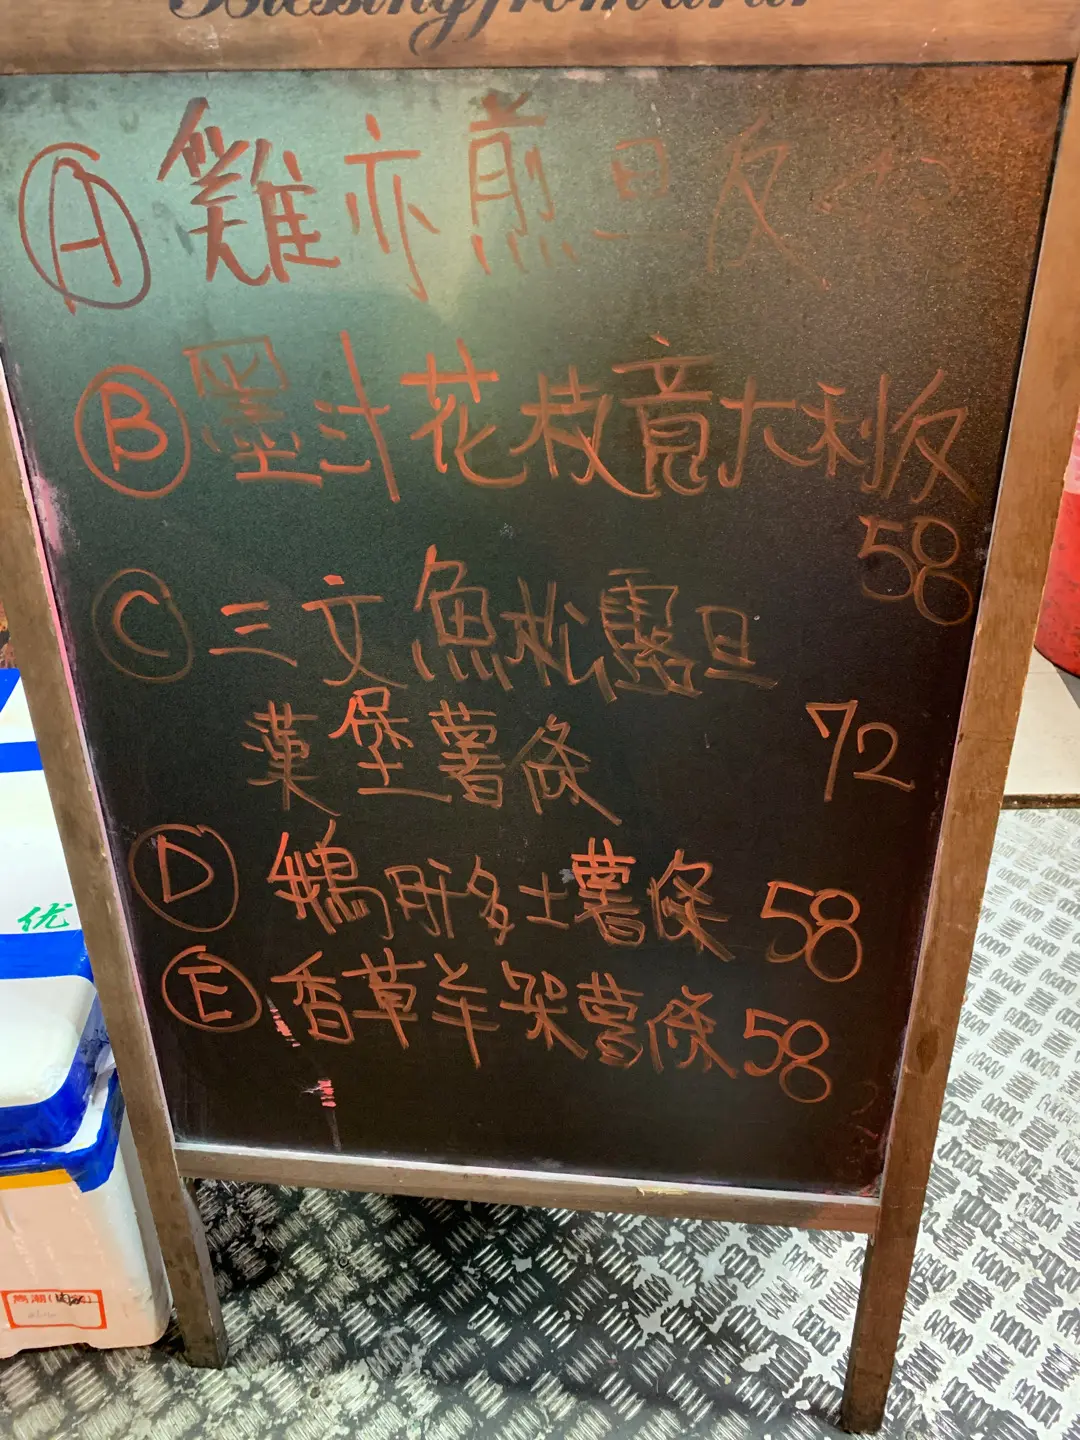 Blessing from
Ⓐ 雞亦煎旦反
Ⓑ 墨斗花枝意大利反
58
Ⓒ 三文魚松露旦
漢堡薯條 72
Ⓓ 鵝肝多士薯條 58
Ⓔ 香草羊架薯條 58
优